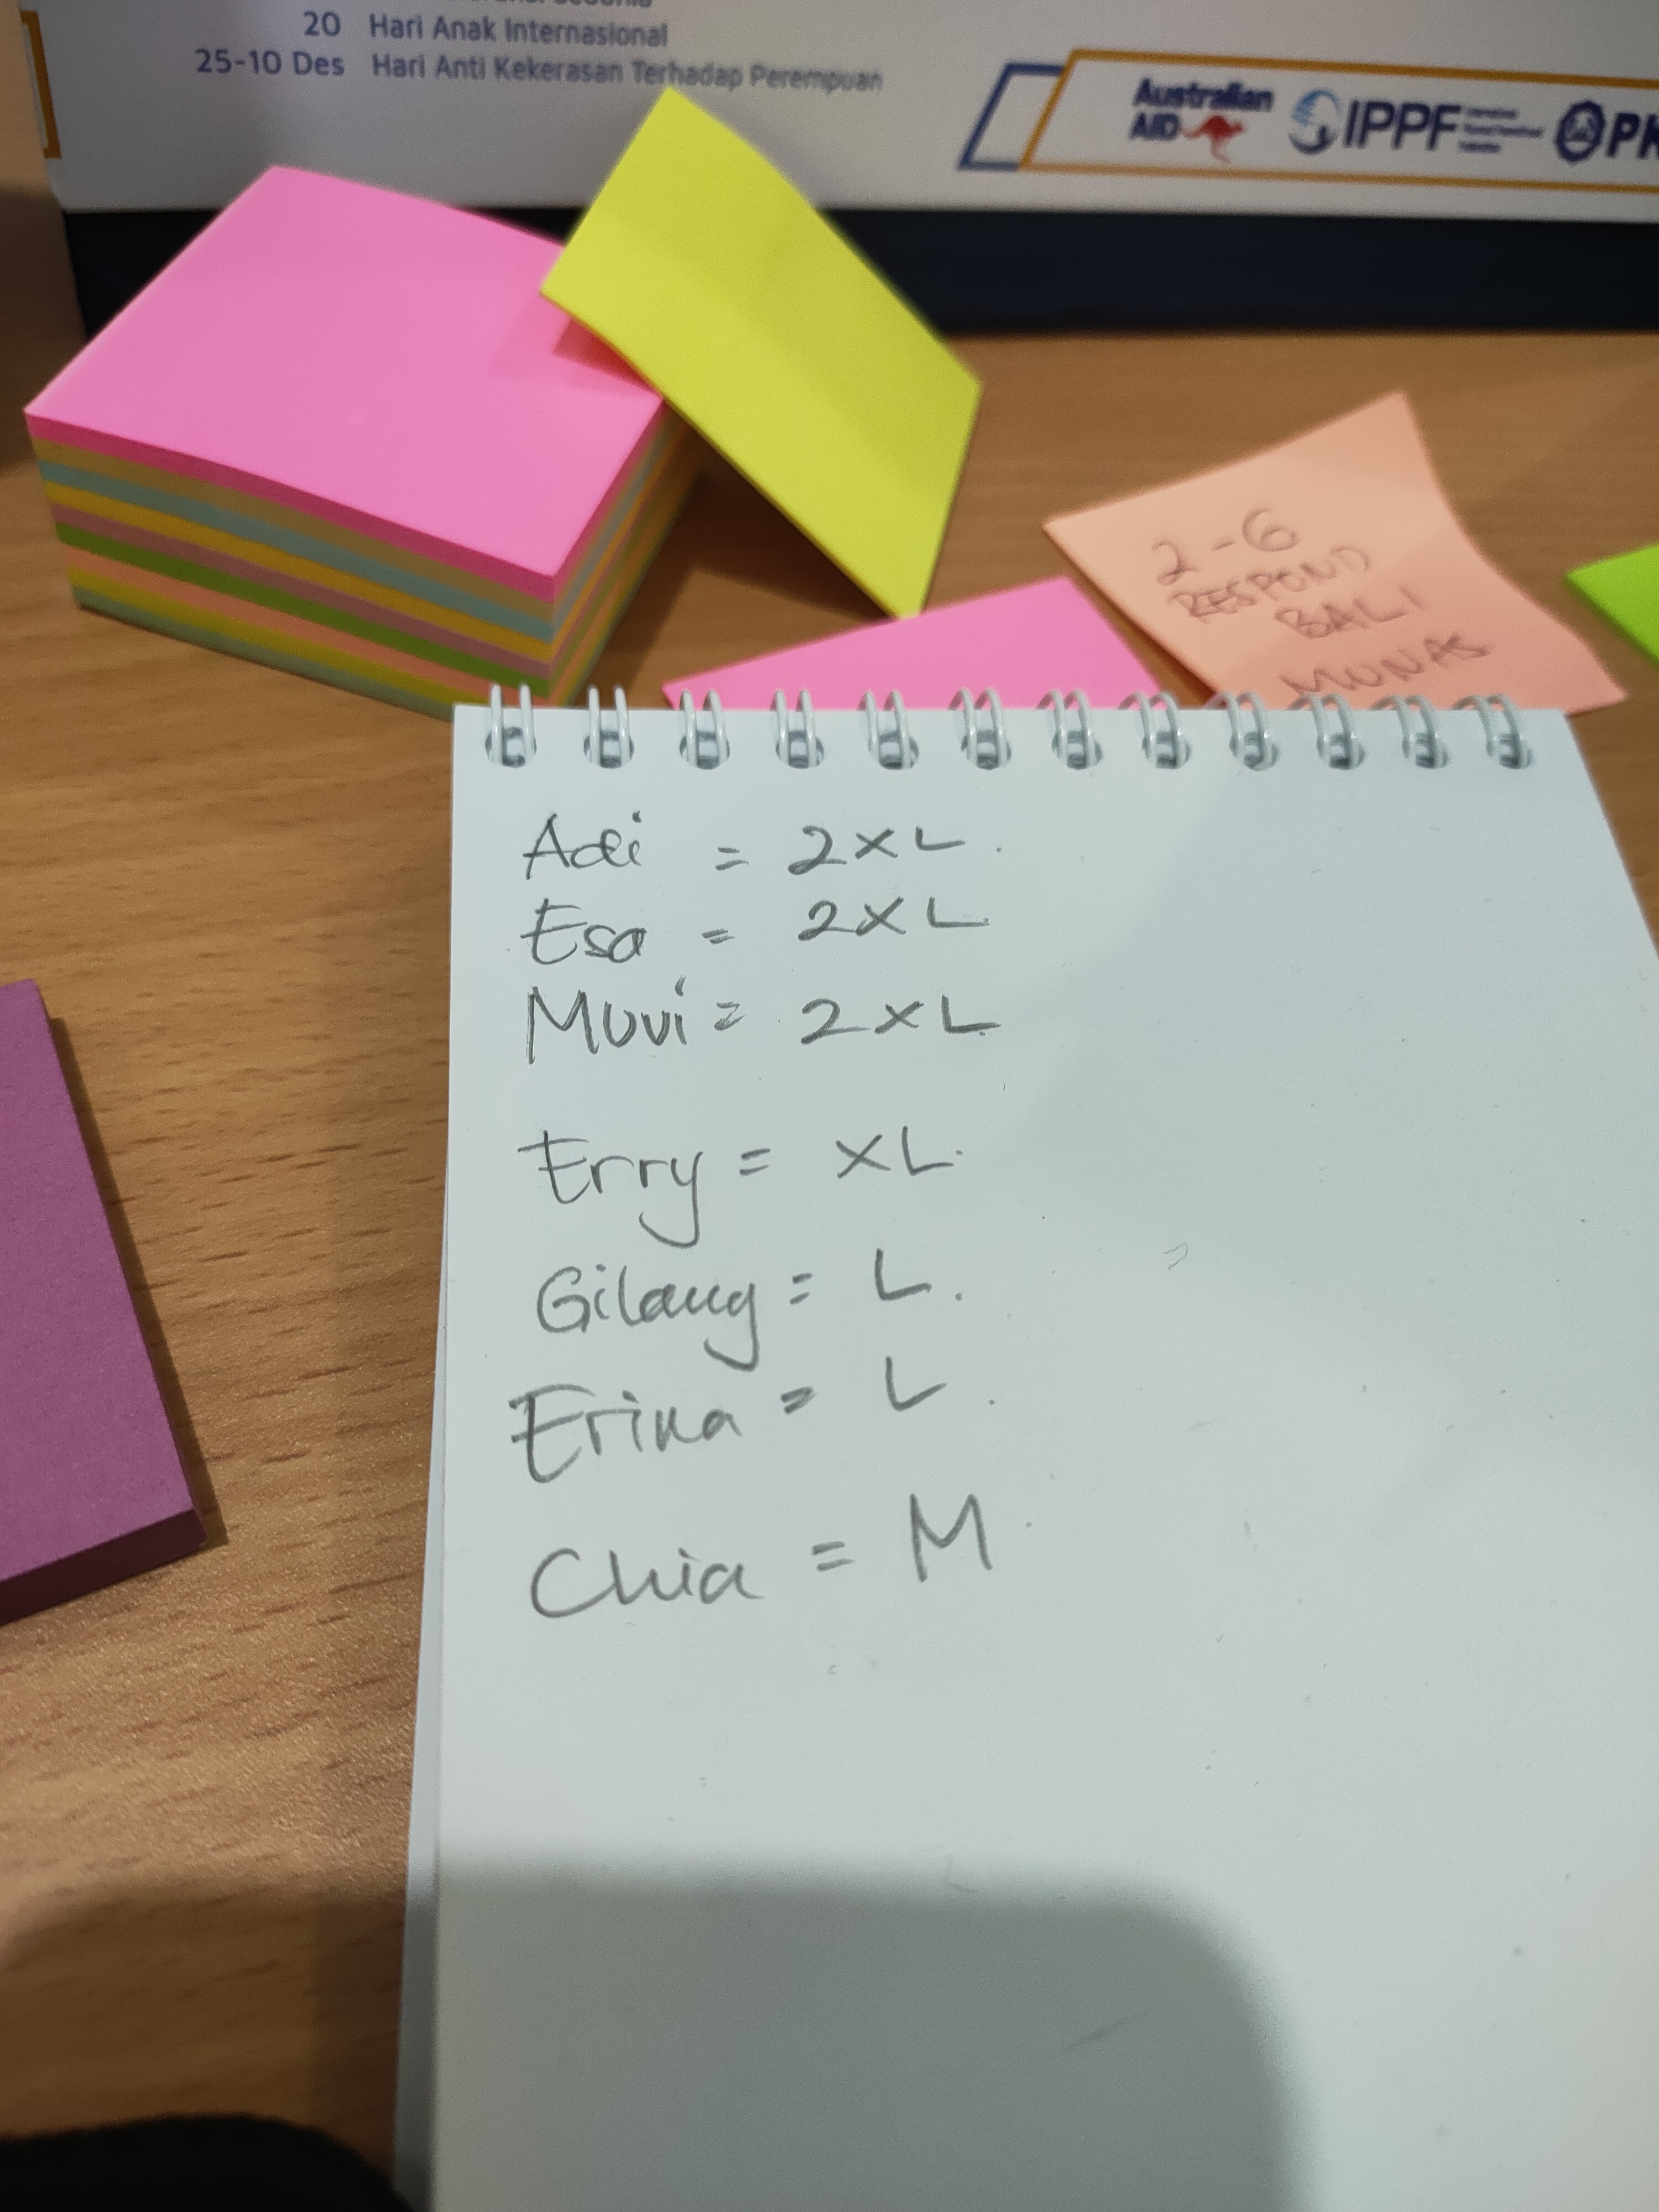 20 Hari Anak Internasional
25-10 Des Hari Anti Kekerasan Terhadap Perempuan
Australian
AID
IPPF
2-6
RESPOND
BALI
MUNAS
Adi = 2XL.
Esa = 2XL
Muvi = 2XL
Erry = XL.
Gilang = L.
Erina = L.
Chia = M